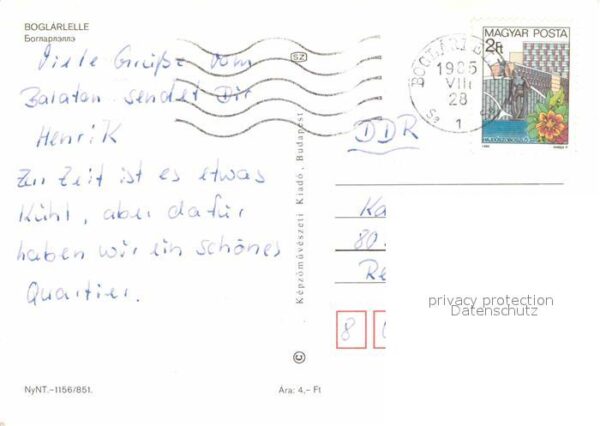 BOGLÁRLELLE
Богларлэллэ
Viele Grüße vom
Balaton sendet Dir
Henrik
Zur Zeit ist es etwas
Kühl, aber dafür
haben wir ein schönes
Quartier.
NyNT.–1156/851.
Ára: 4,– Ft
Képzőművészeti Kiadó, Budapest
©
SZ
MAGYAR POSTA
2Ft
HAJDÚSZOBOSZLÓ
1985
VIII
28
1
DDR
Ka
80
Re
8
privacy protection
Datenschutz